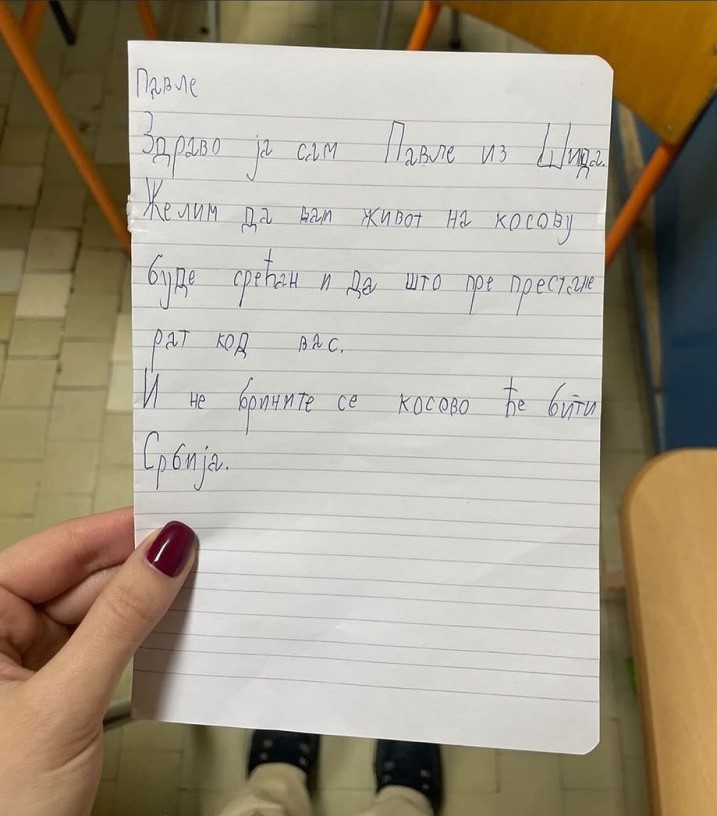 Павле
Здраво ја сам Павле из Шида.
Желим да вам живот на косову
буде срећан и да што пре престане
рат код вас.
И не брините се косово ће бити
Србија.